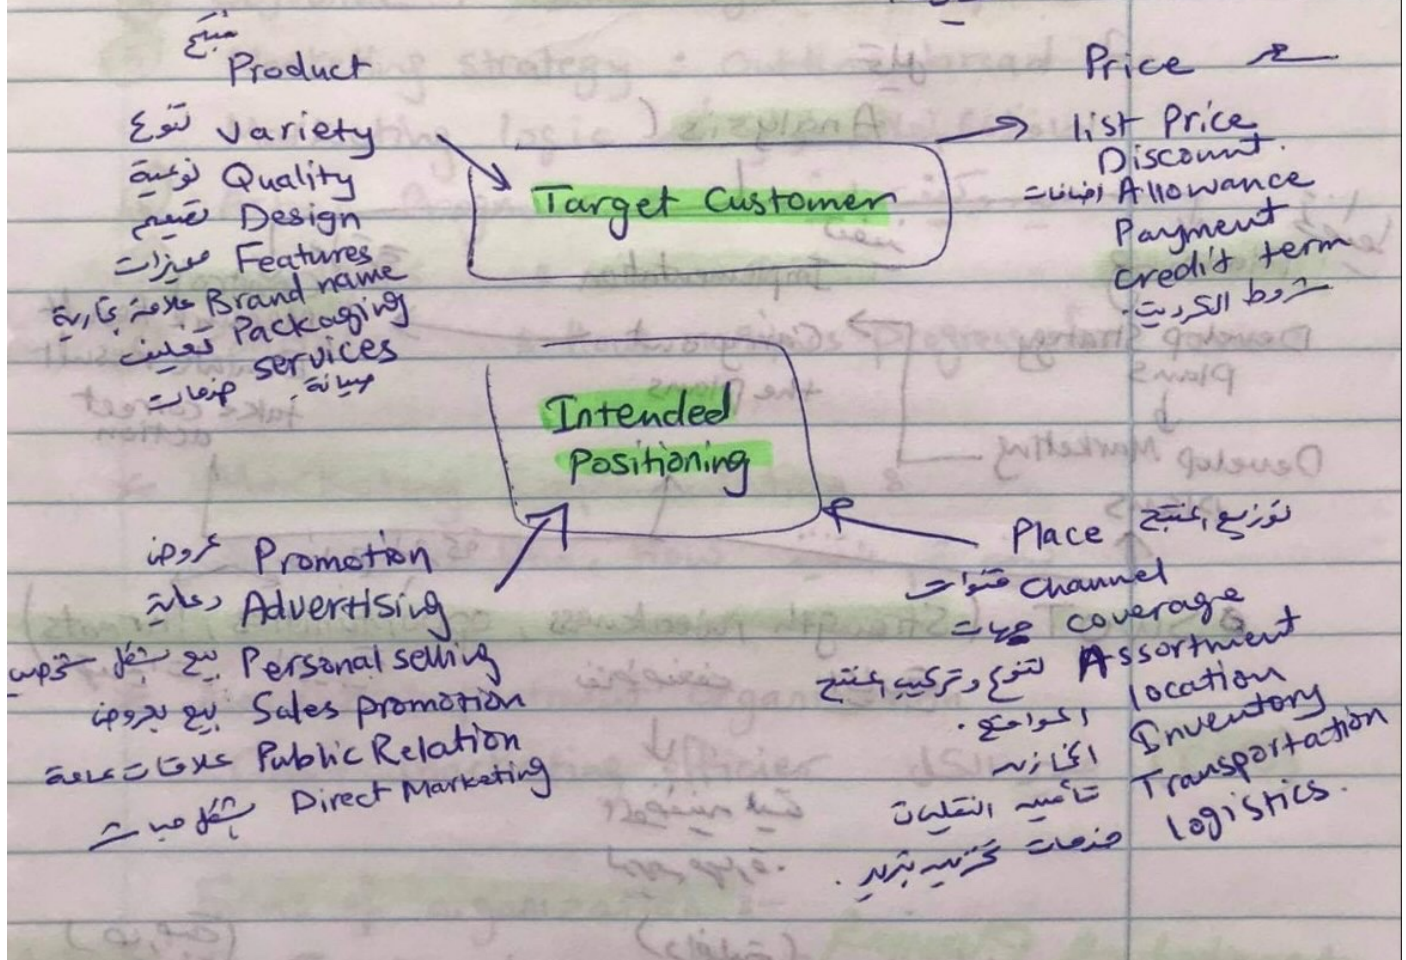 منتج
Product
تنوع Variety
نوعية Quality
تصميم Design
مميزات Features
علامة تجارية Brand name
تغليف Packaging
services
خدمات صيانة
Target Customer
Price سعر
list Price
Discount.
Allowance اضافات
Payment
credit term
شروط الكريديت.
Intended
Positioning
عروض Promotion
دعاية Advertising
بيع بشكل شخصي Personal selling
بيع بعروض Sales promotion
علاقات عامة Public Relation
Direct Marketing
Place توزيع المنتج
قنوات channel
جهات coverage
تنوع وتركيب المنتج Assortment
المواقع. location
المخازن Inventory
تأمين النقليات Transportation
خدمات تخزين تبريد. logistics.